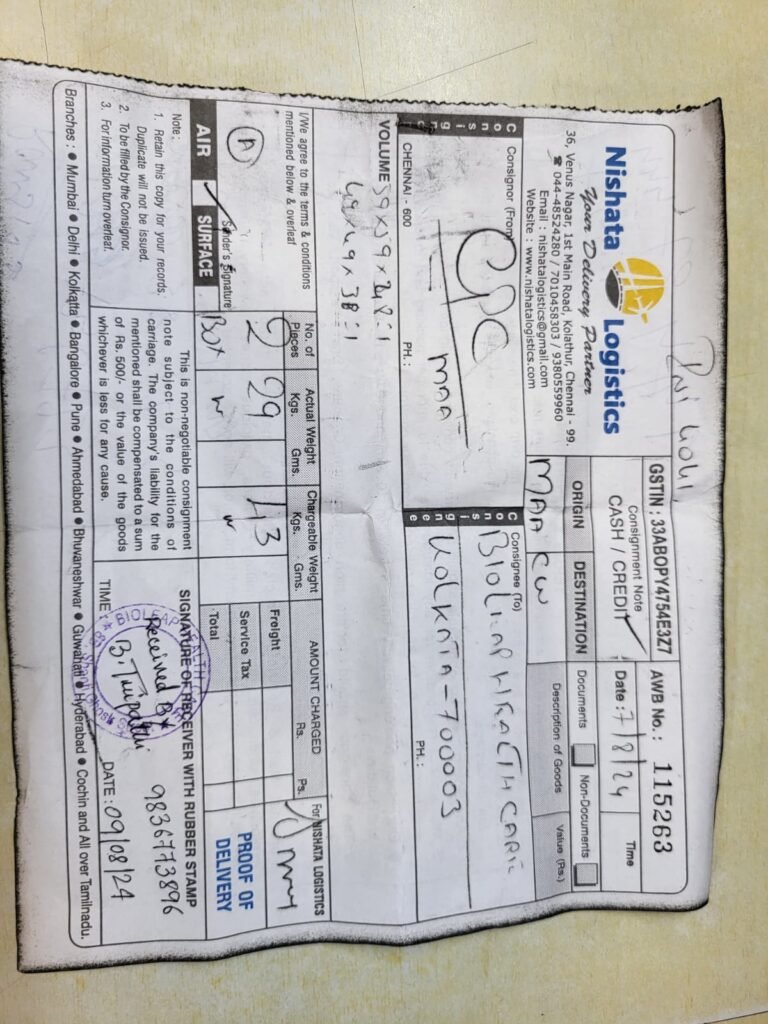 Nishata Logistics
Your Delivery Partner
36, Venus Nagar, 1st Main Road, Kolathur, Chennai - 99.
☎ 044-48524280 / 7010458303 / 9380559960
Email : nishatalogistics@gmail.com
Website : www.nishatalogistics.com
GSTIN : 33ABOPY4754E3Z7
Consignment Note
CASH / CREDIT
AWB No.: 115263
Date : 7/8/24
Time
ORIGIN
DESTINATION
MAA CCU
Documents
Non-Documents
Description of Goods
Value (Rs.)
Consignor
Consignor (From)
CPC
MAA
CHENNAI - 600
PH. :
Consignee
Consignee (To)
BIOLEAP HEALTH CARE
KOLKATA - 700003
PH. :
VOLUME 59x59x28=1
49x49x38=1
I/We agree to the terms & conditions
mentioned below & overleaf
A
Sender's Signature
AIR
SURFACE
No. of Pieces
2
Box
Actual Weight
Kgs. Gms.
29
Chargeable Weight
Kgs. Gms.
43
AMOUNT CHARGED
Rs. Ps.
Freight
Service Tax
Total
For NISHATA LOGISTICS
PROOF OF
DELIVERY
Note :
1. Retain this copy for your records.
Duplicate will not be issued.
2. To be filled by the Consignor.
3. For information turn overleaf.
This is non-negotiable consignment
note subject to the conditions of
carriage. The company's liability for the
mentioned shall be compensated to a sum
of Rs. 500/- or the value of the goods
whichever is less for any cause.
SIGNATURE OF RECEIVER WITH RUBBER STAMP
BIOLEAP HEALTH
Received By
B. Tripathi
9836773896
TIME :
DATE : 09/08/24
Branches : ● Mumbai ● Delhi ● Kolkatta ● Bangalore ● Pune ● Ahmedabad ● Bhuvaneshwar ● Guwahati ● Hyderabad ● Cochin and All over Tamilnadu.